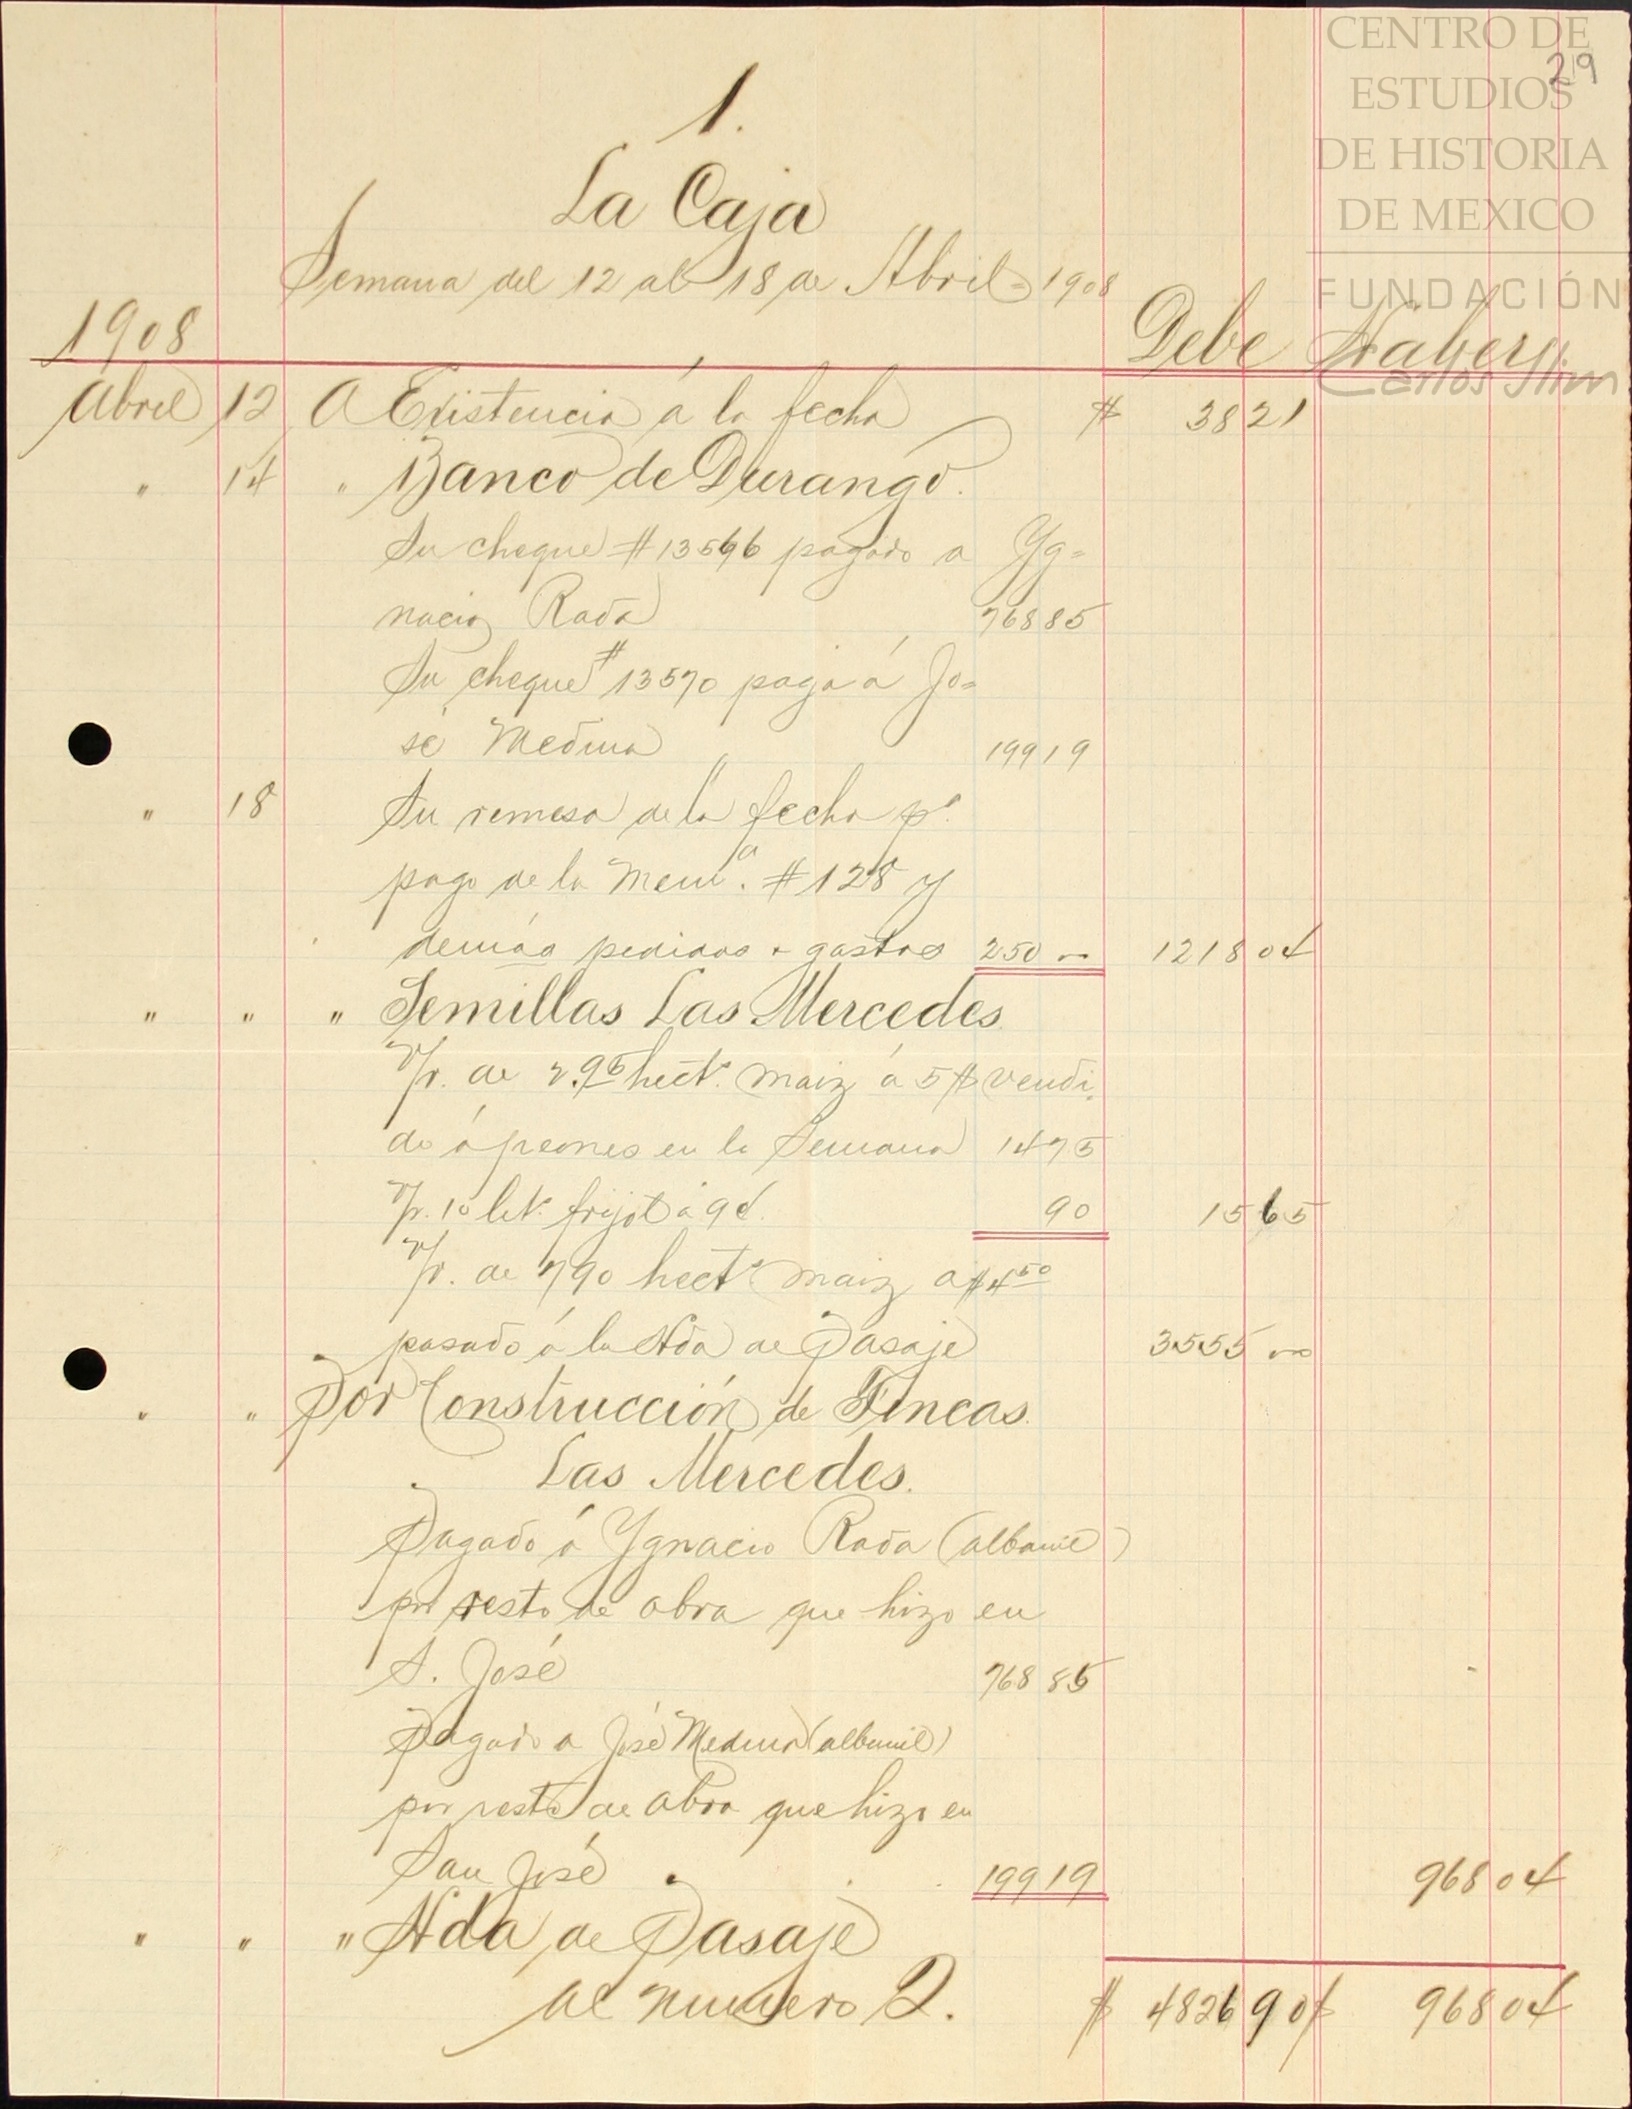 CENTRO DE
ESTUDIOS
DE HISTORIA
DE MEXICO
FUNDACIÓN
Carlos Slim
219
1.
La Caja
Semana del 12 al 18 de Abril - 1908
1908 Debe Haber
Abril 12 A Existencia á la fecha $ 38 21
" 14 " Banco de Durango.
Su cheque # 13566 pagado a Yg=
nacio Rada 768 85
Su cheque # 13570 paga á Jo=
sé Medina 199 19
" 18 Su remesa de la fecha pª
pago de la Memª. # 128 y
demás pedidos y gastos 250 00 1218 04
" " " Semillas Las Mercedes
V/r. de 2.95 hectˢ. maiz á 5 $ vendi.
do á peones en la Semana 14 75
V/r. 10 litˢ. frijol á 9¢. 90 15 65
V/r. de 790 hectˢ maiz a $4 50
pasado á la Hda de Pasaje 3555 00
" " Por Construcción de Fincas.
Las Mercedes.
Pagado á Ygnacio Rada (albañil)
por resto de obra que hizo en
S. José 768 85
Pagado a José Medina (albañil)
por resto de obra que hizo en
San José 199 19 968 04
" " " Hda de Pasaje
al numero 2. $ 4826 90 $ 968 04